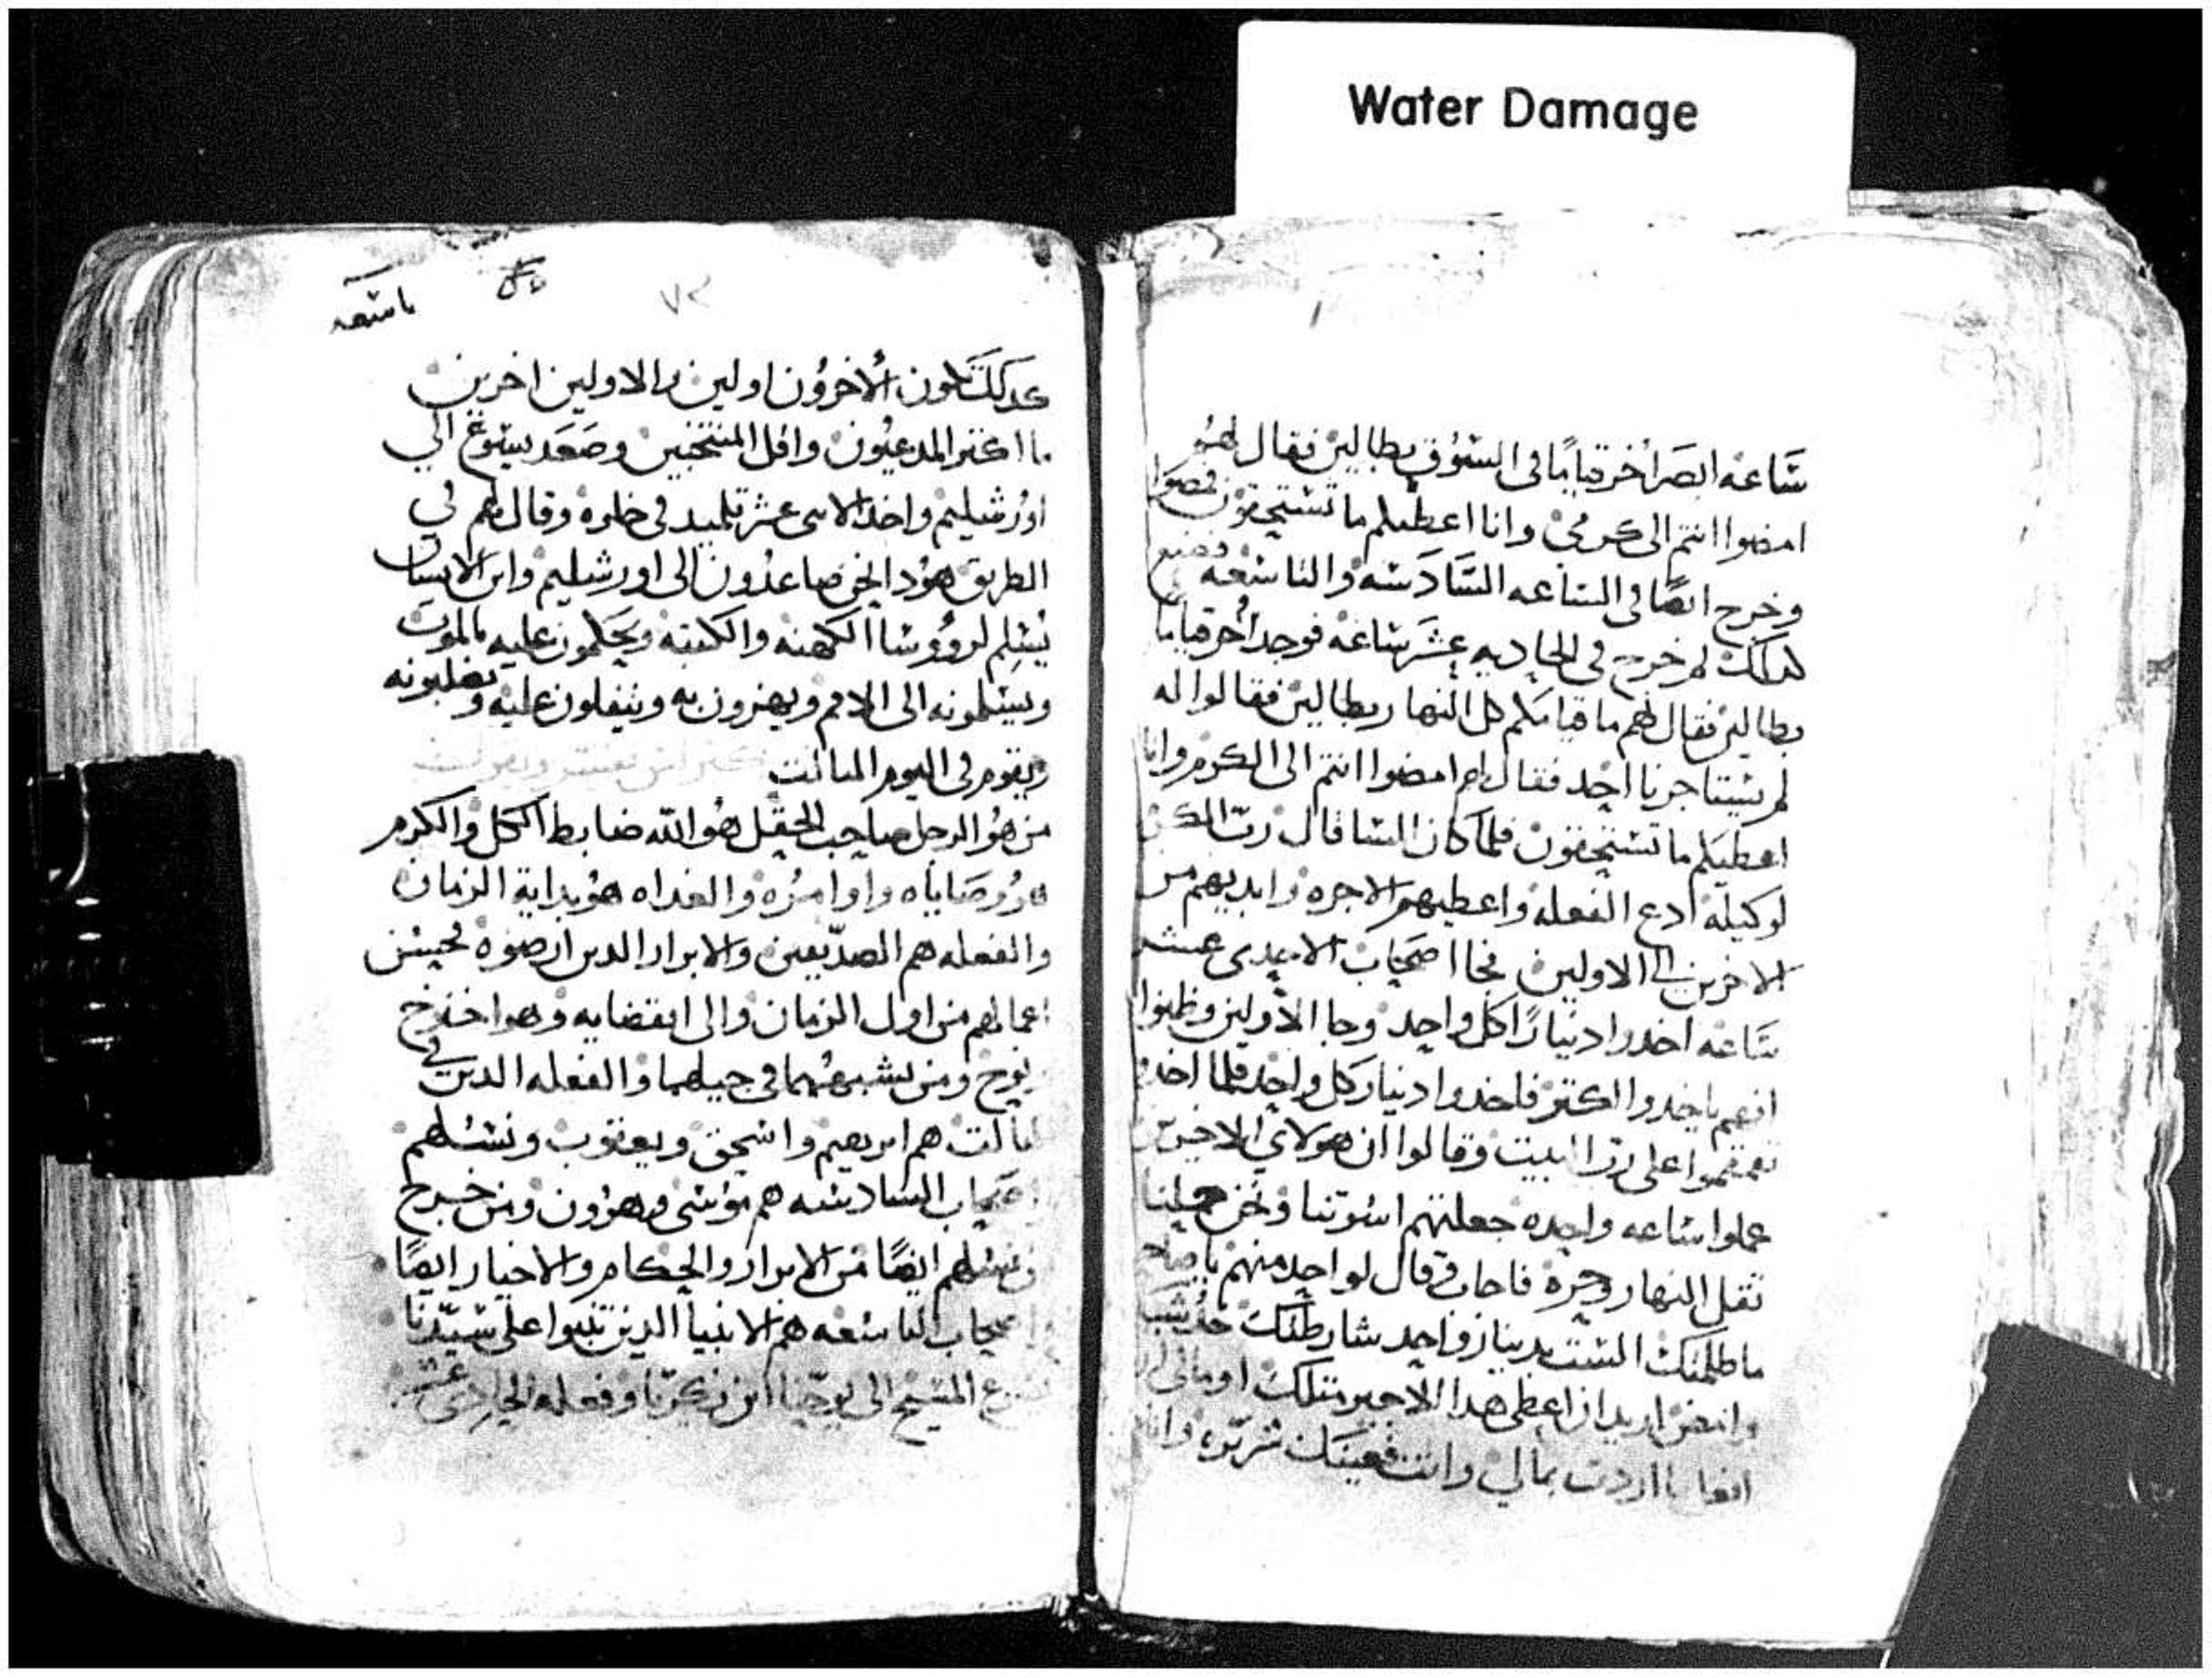 Water Damage
ساعه ابصر اخر قيامًا في السوق بطالين فقال لهم
امضوا انتم الى كرمي وانا اعطيكم ما تستحقون فمضوا
وخرج ايضًا في الساعه السادسه والتاسعه وصنع
كدلك لم خرج في الحاديه عشر ساعه فوجد اخر قياما
بطالين فقال لهم ما قيامكم كل النهار بطالين فقالوا له
لم يستاجرنا احد فقال لهم امضوا انتم الى الكرم وانا
اعطيكم ما تستحقون فلما كان المسا قال رب الكرم
لوكيله ادع الفعله واعطيهم الاجره وابديهم من
الاخرين الى الاولين فجا اصحاب الاحدى عشر
ساعه اخدوا دينارًا كل واحد وجا الاولين وظنوا
انهم ياخدوا اكتر فاخدوا دينار كل واحد فلما اخدوا
تقمقموا على رب البيت وقالوا ان هولاي الاخرين
عملوا ساعه واحده جعلتهم اسوتنا ونحن حملنا
تقل النهار وحره فاجاب وقال لواحد منهم يا صاحب
ما ظلمتك الست بدينار واحد شارطتك خد شيك
وامض اريد ان اعطي هدا الاخير متلك او مالي ان
افعل ما اردت بمالي وانت فعينك شريره وانا
٧٢
تاسعه
كدلك تكون الاخرون اولين والاولين اخرين
ما اكتر المدعيون واقل المنتخبين وصعد يسوع الي
اورشليم واخد الاتني عشر تلميد في خلوه وقال لهم في
الطريق هودا نحن صاعدون الى اورشليم وابن الانسان
يسلم لروؤسا الكهنه والكتبه ويحكمون عليه بالموت
ويسلمونه الى الامم ويهزون به ويتفلون عليه ويصلبونه
ويقوم في اليوم التالت
من هو الرجل صاحب الحقل هو الله ضابط الكل والكرم
هو وصاياه واوامره والغداه هو بداية الزمان
والفعله هم الصديقين والابرار الدين ارضوه بحسن
اعمالهم من اول الزمان والى انقضايه وهو اخنوخ
نوح ومن يشبههما في جيلهما والفعله الدين في
التالت هم ابرهيم واسحق ويعقوب ونسلهم
اصحاب السادسه هم موسى وهرون ومن خرج
من نسلهم ايضًا من الابرار والحكام والاخيار ايضًا
واصحاب التاسعه هم الانبيا الدين تنبوا على سيدنا
يسوع المسيح الى يوحنا ابن زكريا وفعله الحادي عشر